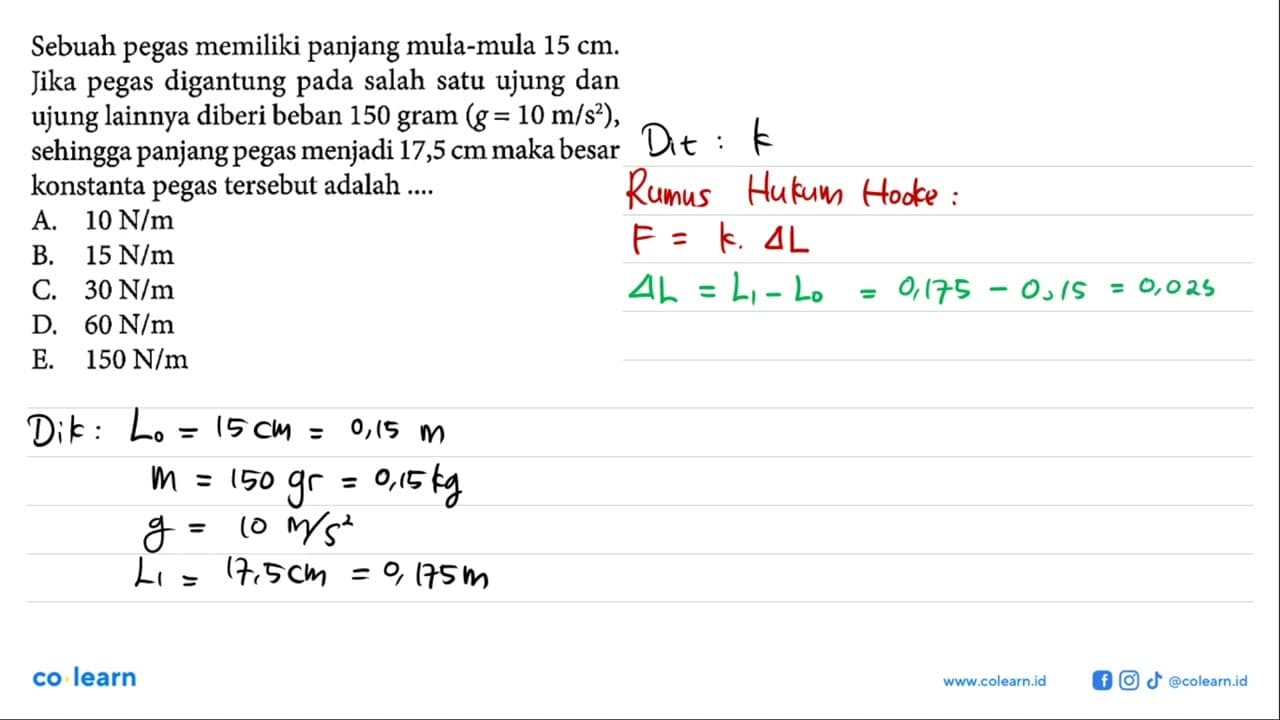 Sebuah pegas memiliki panjang mula-mula 15 cm.
Jika pegas digantung pada salah satu ujung dan
ujung lainnya diberi beban 150 gram (g = 10 m/s²),
sehingga panjang pegas menjadi 17,5 cm maka besar
konstanta pegas tersebut adalah ....
A. 10 N/m
B. 15 N/m
C. 30 N/m
D. 60 N/m
E. 150 N/m
Dit : k
Rumus Hukum Hooke :
F = k. ΔL
ΔL = L₁ - L₀ = 0,175 - 0,15 = 0,025
Dik : L₀ = 15 cm = 0,15 m
m = 150 gr = 0,15 kg
g = 10 m/s²
L₁ = 17,5 cm = 0,175 m
co learn
www.colearn.id
@colearn.id